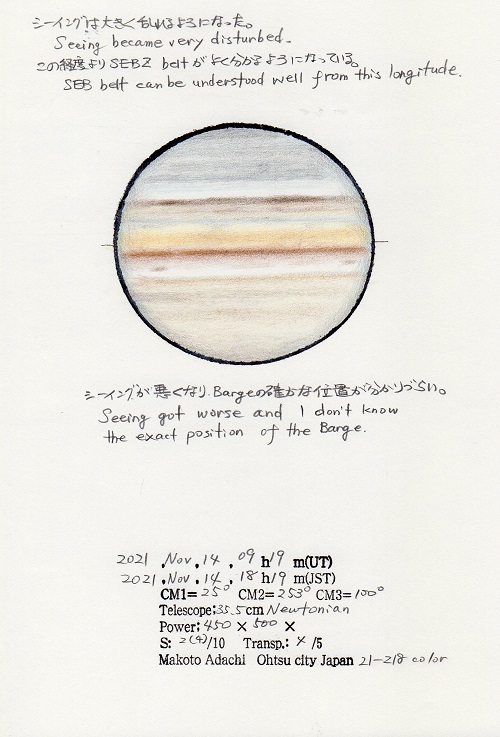 シーイングは大きく乱れるようになった。
Seeing became very disturbed.
この経度よりSEBZ beltがよく分かるようになっている。
SEB belt can be understood well from this longitude.
シーイングが悪くなり、Bargeの確かな位置が分かりづらい。
Seeing got worse and I don't know
the exact position of the Barge.
2021 , Nov , 14 , 09 h 19 m(UT)
2021 , Nov , 14 , 18 h 19 m(JST)
CM1= 25° CM2= 253° CM3= 100°
Telescope: 35.5 cm Newtonian
Power: 450 × 500 ×
S: 2(4)/10 Transp.: /5
Makoto Adachi Ohtsu city Japan 21-218 color